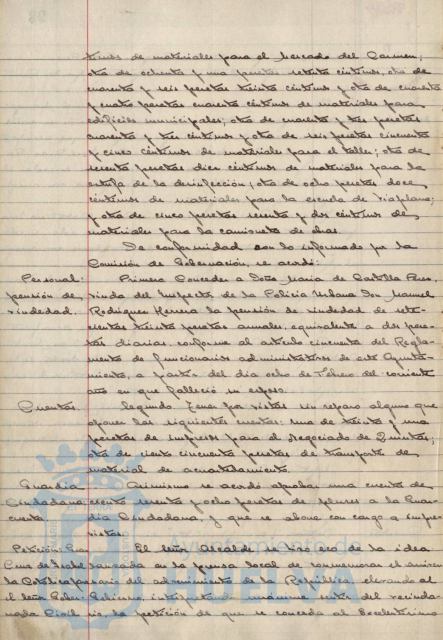 timos de materiales para el Mercado del Carmen;
otra de ochenta y una pesetas setenta céntimos, otra de
cuarenta y seis pesetas treinta céntimos y otra de cuarenta
y cuatro pesetas cuarenta céntimos de materiales para
edificios municipales; otra de cuarenta y tres pesetas
cuarenta y tres céntimos y otra de seis pesetas cincuenta
y cinco céntimos de materiales para el taller; otra de
sesenta pesetas diez céntimos de materiales para la
estufa de la desinfección; otra de ocho pesetas doce
céntimos de materiales para la escuela de
y otra de cinco pesetas sesenta y dos céntimos de
materiales para la camioneta de obras.
De conformidad con lo informado por la
Comisión de Gobernación, se acordó:
Personal: Primero Conceder a Doña María de Castilla Pérez,
pensión de viuda del Inspector de la Policía Urbana Don Manuel
viudedad. Rodríguez Herrera la pensión de viudedad de sete-
cientas treinta pesetas anuales, equivalente a dos pese-
tas diarias, conforme al artículo cincuenta del Regla-
mento de funcionarios administrativos de este Ayunta-
miento, a partir del día ocho de Febrero del corriente
año en que falleció su esposo.
Cuentas. Segundo. Tener por vistas sin reparo alguno que
oponer las siguientes cuentas: una de treinta y una
pesetas de impresos para el Negociado de Quintas;
otra de ciento cincuenta pesetas de transporte de
material de acuartelamiento.
Guardia Asimismo se acordó aprobar una cuenta de
Ciudadana: ciento sesenta y ocho pesetas de pluses a la Guar-
cuenta dia Ciudadana, y que se abone con cargo a impre-
vistos.
Petición: Gran El señor Alcalde se hizo eco de la idea
Cruz de Isabel lanzada en la prensa local de conmemorar el aniver-
la Católica para sario del advenimiento de la República elevando al
el señor Gober- Gobierno, interpretando unánime sentir del vecinda-
nador Civil rio, la petición de que se conceda al Excelentísimo
Ayuntamiento de
HUELVA